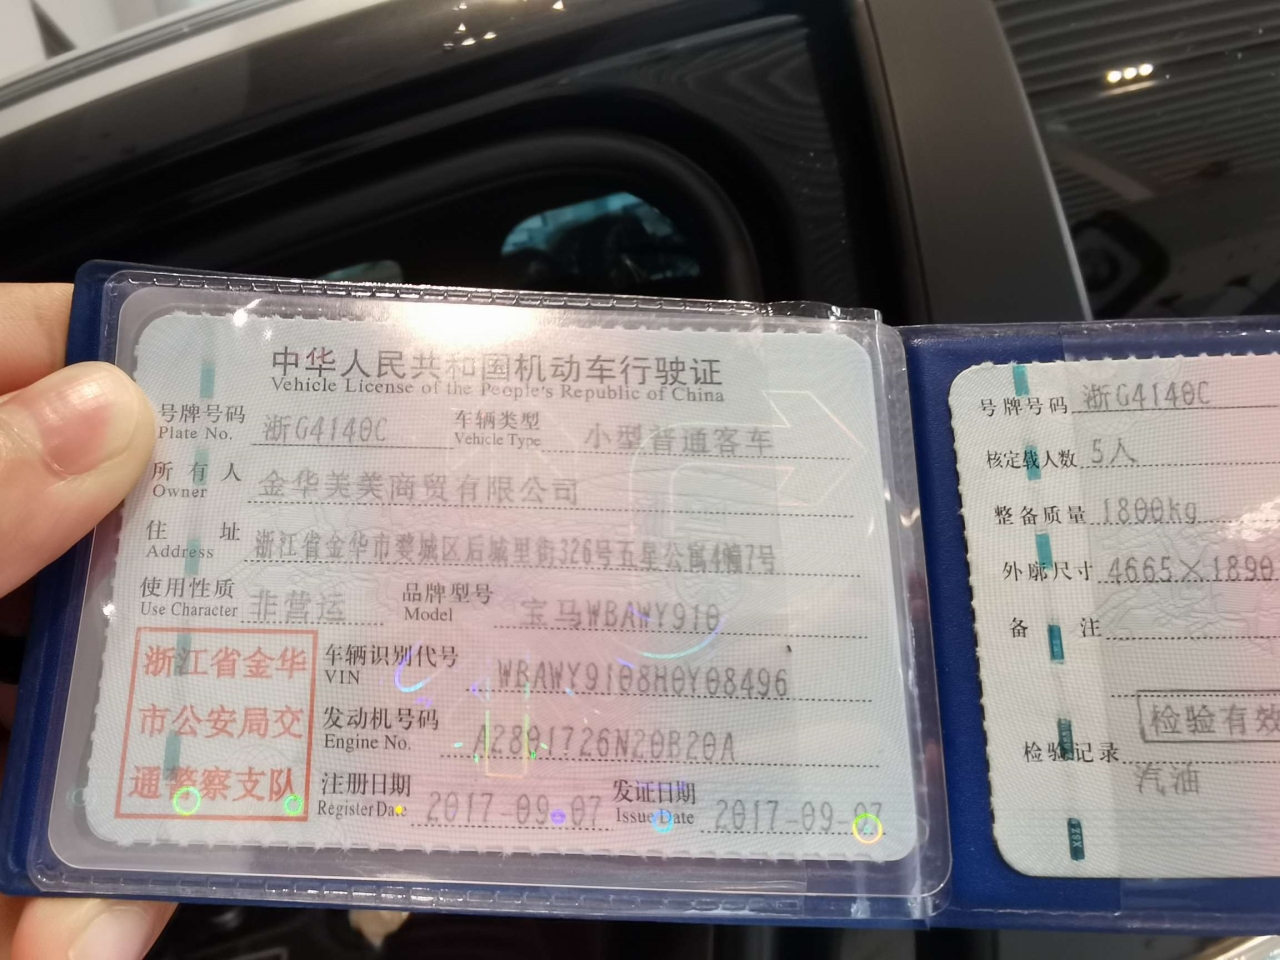 中华人民共和国机动车行驶证
Vehicle License of the People's Republic of China
号牌号码 浙G4140C 车辆类型 小型普通客车
Plate No. Vehicle Type
所有人 金华美美商贸有限公司
Owner
住址 浙江省金华市婺城区后城里街326号五星公寓4幢7号
Address
使用性质 非营运 品牌型号 宝马WBAWY910
Use Character Model
浙江省金华
市公安局交
通警察支队
车辆识别代号 WBAWY9108H0Y08496
VIN
发动机号码 A2801726N20B20A
Engine No.
注册日期 2017-09-07 发证日期 2017-09-07
Register Date Issue Date
号牌号码 浙G4140C
核定载人数 5人
整备质量 1800kg
外廓尺寸 4665×1890
备注
检验有效
检验记录
汽油